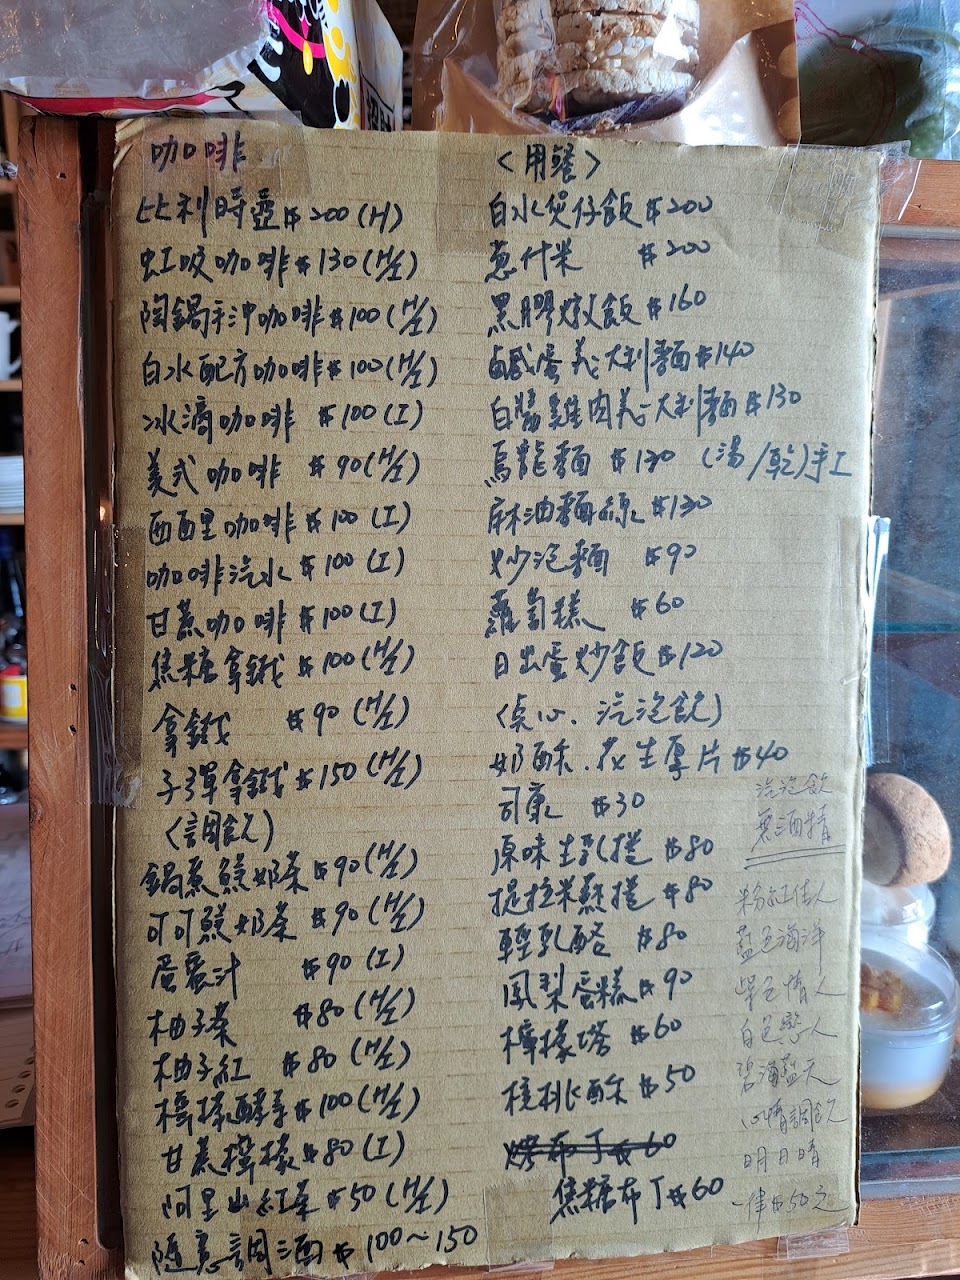 咖啡
比利時壺$200(H)
虹吸咖啡$130(H/I)
陶鍋手沖咖啡$100(H/I)
白水配方咖啡$100(H/I)
冰滴咖啡 $100(I)
美式咖啡 $90(H/I)
西西里咖啡$100(I)
咖啡汽水$100(I)
甘蔗咖啡$100(I)
焦糖拿鐵$100(H/I)
拿鐵 $90(H/I)
子彈拿鐵$150(H/I)
(調飲)
鍋煮鮮奶茶$90(H/I)
可可鮮奶茶$90(H/I)
蛋蜜汁 $90(I)
柚子茶 $80(H/I)
柚子紅 $80(H/I)
檸檬酵素$100(H/I)
甘蔗檸檬$80(I)
阿里山紅茶$50(H/I)
隨意調酒$100~150
〈用餐〉
白水煲仔飯$200
蔥什米 $200
黑膠燉飯$160
鹹蛋義大利麵$140
白醬雞肉義大利麵$130
烏龍麵 $130 (湯/乾)手工
麻油麵線$130
炒泡麵 $90
蘿蔔糕 $60
日出蛋炒飯$120
(桌心.汽泡飲)
奶酥.花生厚片$40
司康 $30
原味生乳捲 $80
提拉米蘇捲 $80
輕乳酪 $80
鳳梨蛋糕$90
檸檬塔 $60
核桃酥$50
烤布丁$60
焦糖布丁$60
汽泡飲
無酒精
粉紅佳人
藍色海洋
紫色情人
白色戀人
碧海藍天
心情調飲
明日晴
一律$50元